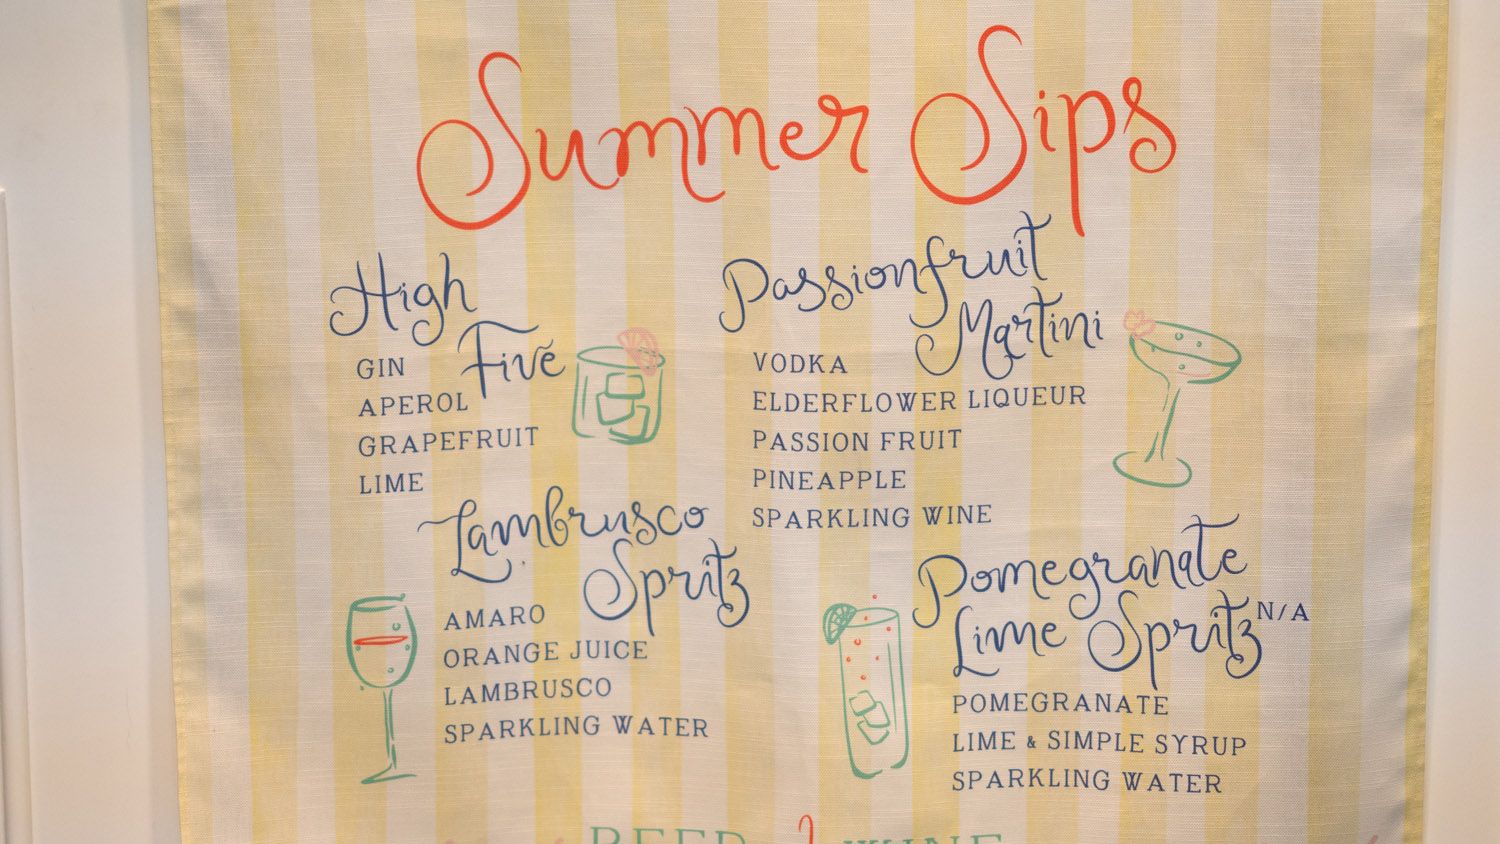 Summer Sips
High
Five
GIN
APEROL
GRAPEFRUIT
LIME
Passionfruit
Martini
VODKA
ELDERFLOWER LIQUEUR
PASSION FRUIT
PINEAPPLE
SPARKLING WINE
Lambrusco
Spritz
AMARO
ORANGE JUICE
LAMBRUSCO
SPARKLING WATER
Pomegranate
Lime Spritz N/A
POMEGRANATE
LIME & SIMPLE SYRUP
SPARKLING WATER
BEER WINE